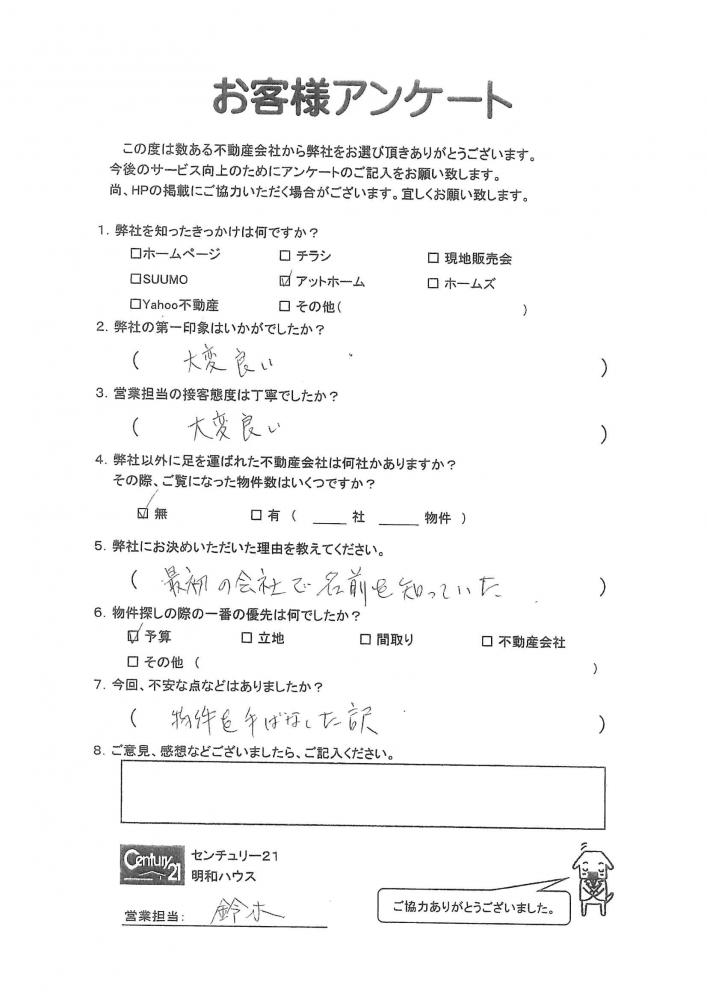 お客様アンケート
この度は数ある不動産会社から弊社をお選び頂きありがとうございます。
今後のサービス向上のためにアンケートのご記入をお願い致します。
尚、HPの掲載にご協力いただく場合がございます。宜しくお願い致します。
1. 弊社を知ったきっかけは何ですか?
□ホームページ □ チラシ □ 現地販売会
□SUUMO ☑ アットホーム □ ホームズ
□Yahoo不動産 □ その他( )
2. 弊社の第一印象はいかがでしたか?
( 大変良い )
3. 営業担当の接客態度は丁寧でしたか?
( 大変良い )
4. 弊社以外に足を運ばれた不動産会社は何社かありますか?
その際、ご覧になった物件数はいくつですか?
☑ 無 □ 有 ( ____ 社 ____ 物件 )
5. 弊社にお決めいただいた理由を教えてください。
( 最初の会社で名前を知っていた )
6. 物件探しの際の一番の優先は何でしたか?
☑ 予算 □ 立地 □ 間取り □ 不動産会社
□ その他 ( )
7. 今回、不安な点などはありましたか?
( 物件を手ばなした訳 )
8. ご意見、感想などございましたら、ご記入ください。
Century 21
センチュリー21
明和ハウス
営業担当: 鈴木
ご協力ありがとうございました。